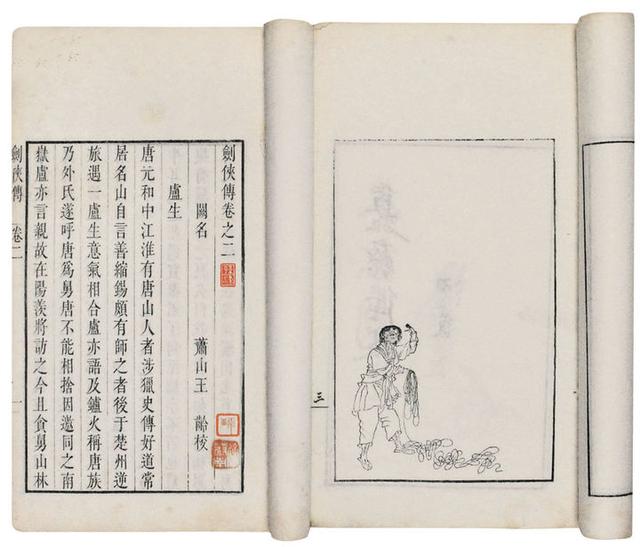 三
劍俠傳卷之二
闕名 蕭山王 齡校
盧生
唐元和中江淮有唐山人者涉獵史傳好道常
居名山自言善縮錫頗有師之者後于楚州逆
旅遇一盧生意氣相合盧亦語及鑪火稱唐族
乃外氏遂呼唐爲舅唐不能相捨因邀同之南
嶽盧亦言親故在陽羨將訪之今且貪舅山林
劍俠傳 卷二 一